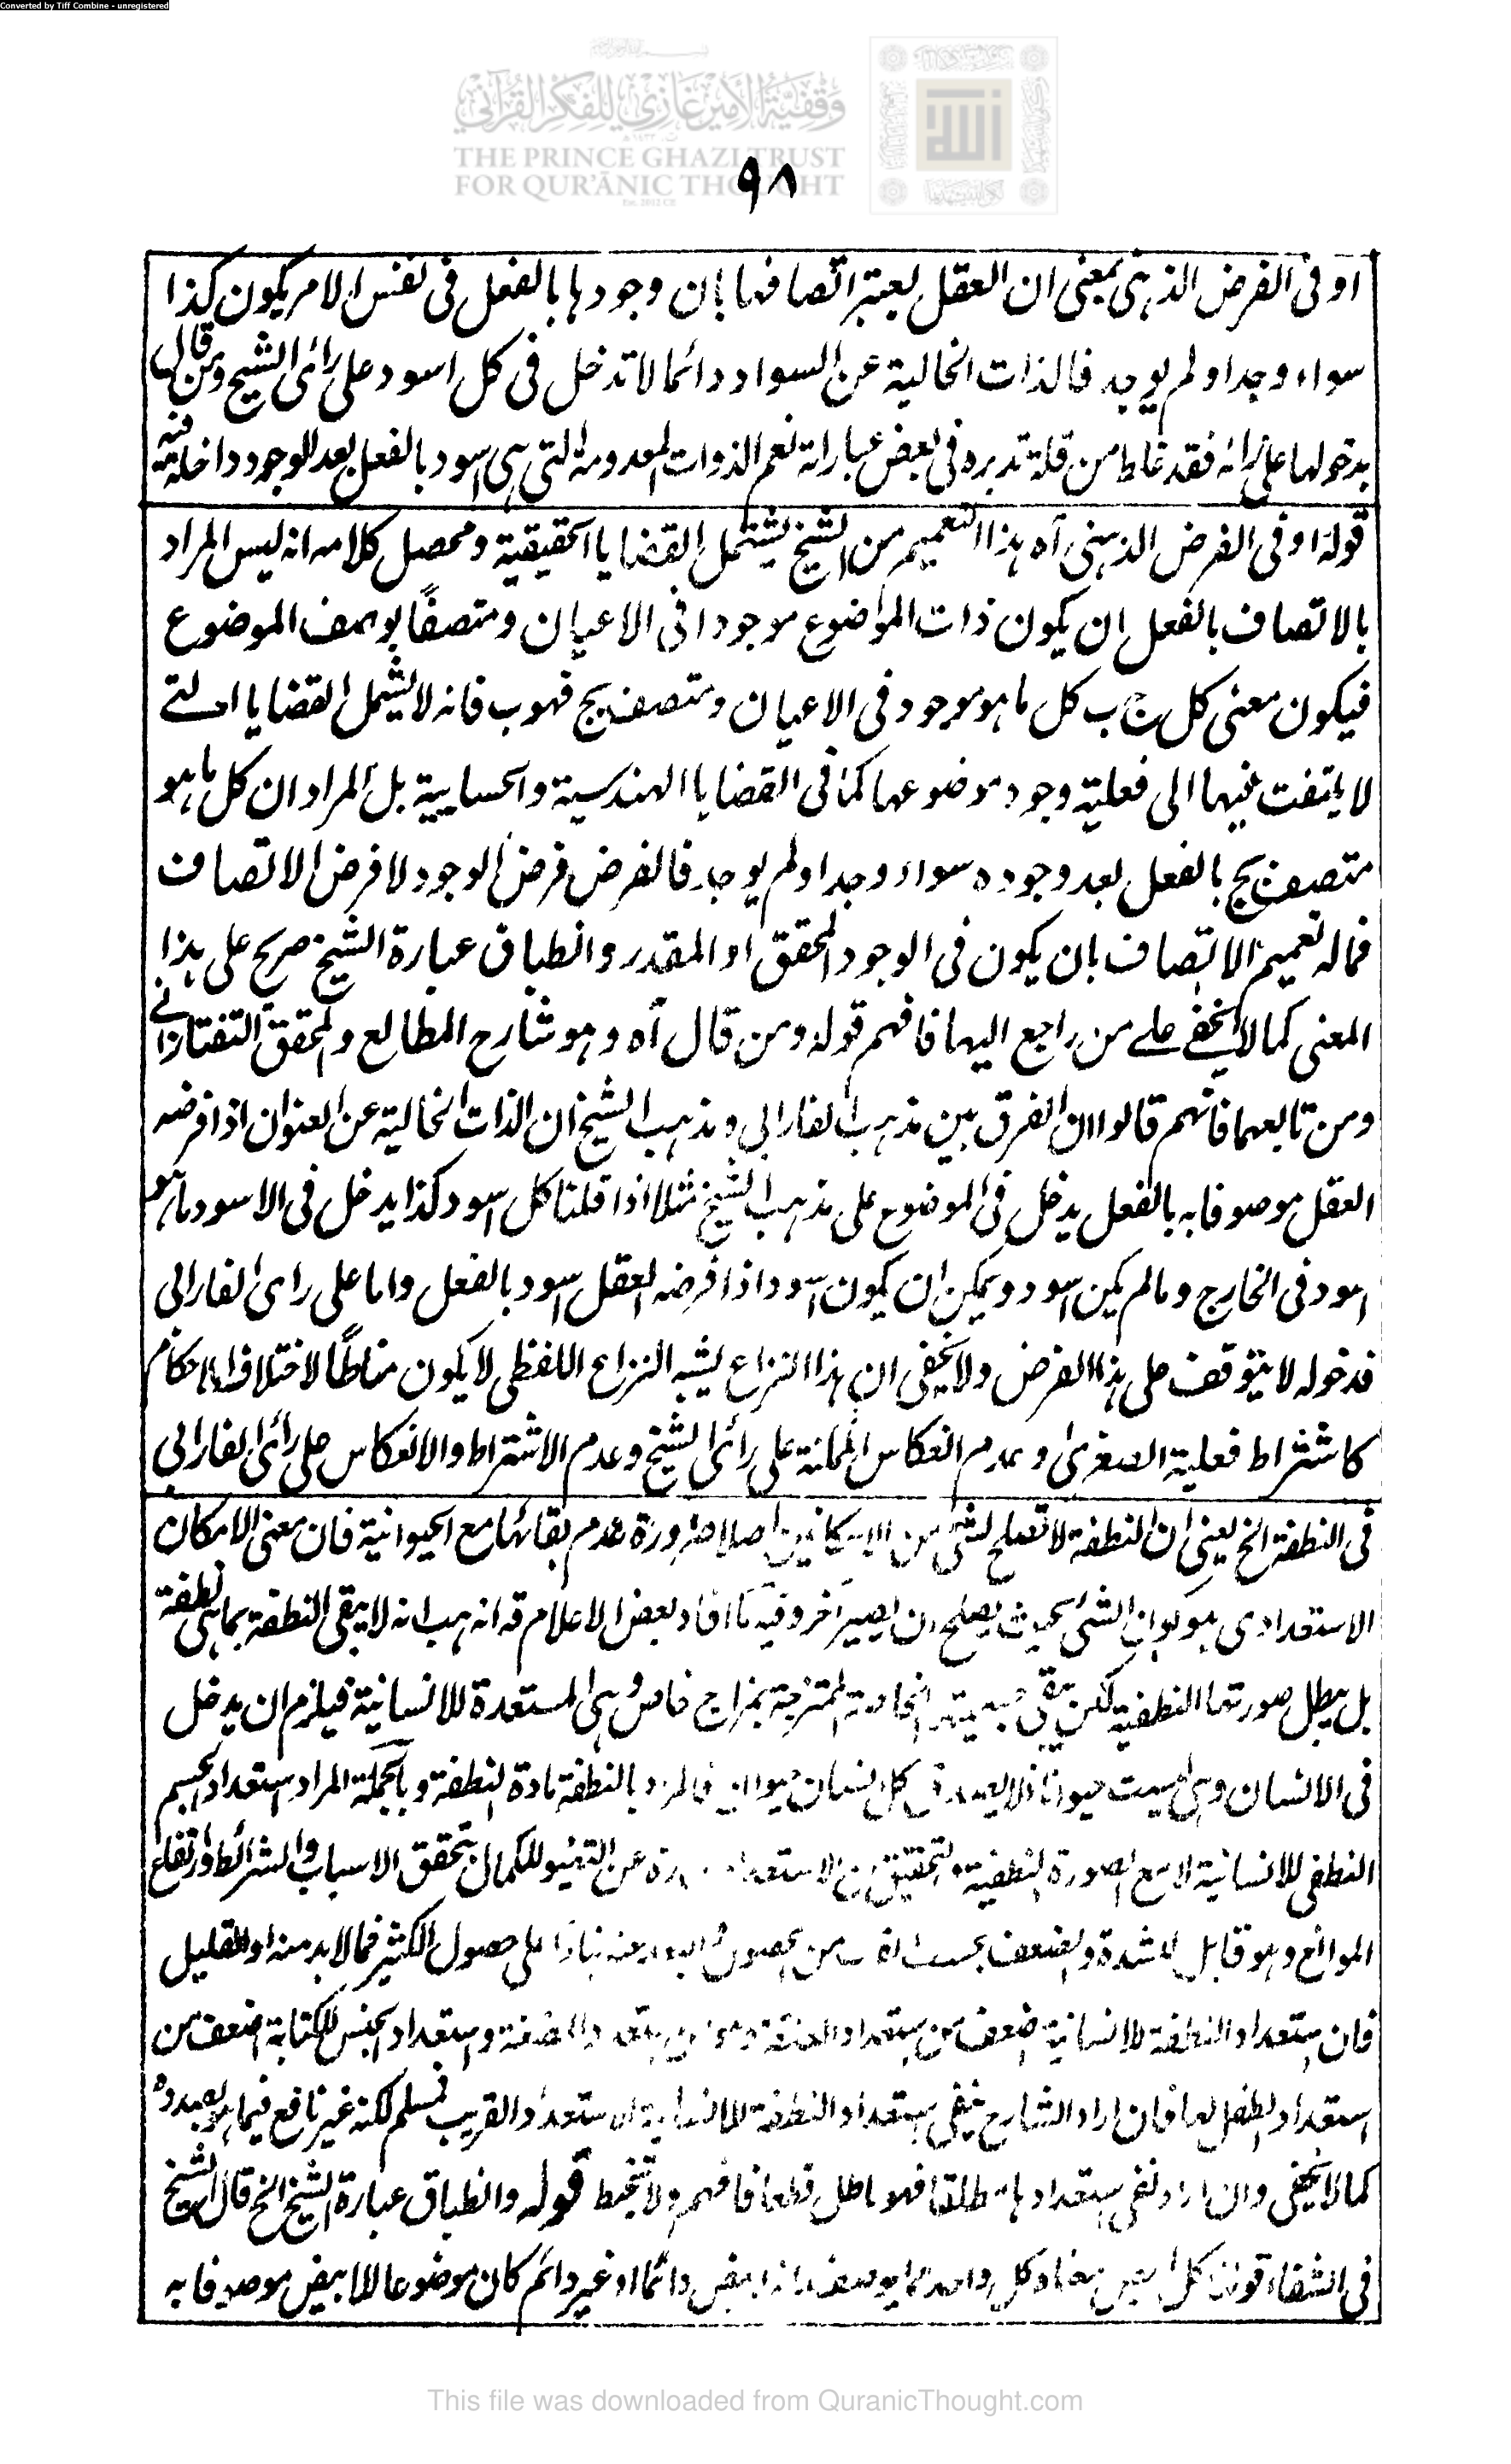 Converted by Tiff Combine - unregistered
وقفية الأمير غازي للفكر القرآني
THE PRINCE GHAZI TRUST
FOR QUR'ĀNIC THOUGHT
٩٨
او فى الفرض الذهنى بمعنى ان العقل يعتبر اتصافها بان وجودها بالفعل فى نفس الامر يكون كذا
سواء وجد اولم يوجد فالذات الخالية عن السواد دائما لا تدخل فى كل اسود على رائ الشيخ ومن قال
بدخولها على رائه فقد غلط من قلة تدبره فى بعض عباراته نعم الذوات المعدومة التى هى اسود بالفعل بعد الوجود داخلة فيه
قوله او فى الفرض الذهنى آه هذا التعميم من الشيخ ليشتمل القضايا الحقيقية ومحصل كلامه انه ليس المراد
بالاتصاف بالفعل ان يكون ذات الموضوع موجودا فى الاعيان ومتصفًا بوصف الموضوع
فيكون معنى كل ج ب كل ما هو موجود فى الاعيان ومتصف بج فهو ب فانه لا يشمل القضايا التے
لا يلتفت فيها الى فعلية وجود موضوعها كما فى القضايا الهندسية والحسابية بل المراد ان كل ما هو
متصف بج بالفعل بعد وجوده سواء وجد اولم يوجد فالفرض فرض الوجود لا فرض الاتصاف
فماله تعميم الاتصاف بان يكون فى الوجود المحقق او المقدر وانطباق عبارة الشيخ صريح على هذا
المعنى كما لا يخفے علے من راجع اليها فافهم قوله ومن قال آه وهو شارح المطالع والمحقق التفتازانے
ومن تابعهما فانهم قالوا ان الفرق بين مذهب الفارابى ومذهب الشيخ ان الذات الخالية عن العنوان اذا فرضه
العقل موصوفا به بالفعل يدخل فى الموضوع على مذهب الشيخ مثلا اذا قلنا كل اسود كذا يدخل فى الاسود ما هو
اسود فى الخارج وما لم يكن اسود ويمكن ان يكون اسود اذا فرضه العقل اسود بالفعل واما على راى الفارابى
فدخوله لا يتوقف على هذا الفرض ولا يخفى ان هذا النزاع يشبه النزاع اللفظى لا يكون مناطًا لاختلاف الاحكام
كاشتراط فعلية الصغرى وعدم انعكاس الممكنة على رائ الشيخ وعدم الاشتراط والانعكاس على رائ الفارابى
فى النطفة الخ يعنى ان النطفة لا تصلح لشئ من الامكانين اصلا ضرورة عدم بقائها مع الحيوانية فان معنى الامكان
الاستعدادى هو كون الشئ بحيث يصلح ان يصير آخر وفيه ما افاد بعض الاعلام قه انه هب انه لا يبقى النطفة بما هى نطفة
بل يبطل صورتها النطفية لكن يبقى الممتزجة بمزاج خاص وهى المستعدة للانسانية فيلزم ان يدخل
فى الانسان وهى ليست حيوانا فلا يصدق كل انسان حيوان فالمراد بالنطفة مادة النطفة وبالجملة المراد استعداد الجسم
النطفى للانسانية لا مع الصورة النطفية والتحقيق ان الاستعداد عن التهيؤ للكمال بتحقق الاسباب والشرائط وارتفاع
الموانع وهو قابل للشدة والضعف بحسب القرب من الحصول والبعد عنه بناءً على حصول الكثير فما لابد منه او القليل
فان استعداد النطفة للانسانية اضعف من استعداد العلقة استعداد المضغة واستعداد الجنين للكتابة اضعف من
استعداد الطفل لها فان اراد الشارح نفى استعداد النطفة للانسانية الاستعداد القريب فمسلم لكنه غير نافع فيما هو بصدده
كما لا يخفى وان اراد نفى استعدادها مطلقا فهو باطل قطعا فافهم ولا تخبط قوله وانطباق عبارة الشيخ الخ قال الشيخ
فى الشفاء قولنا كل ابيض معناه كل واحد مما يوصف بانه ابيض دائما او غير دائم كان موضوعا للابيض موصوفا به
This file was downloaded from QuranicThought.com